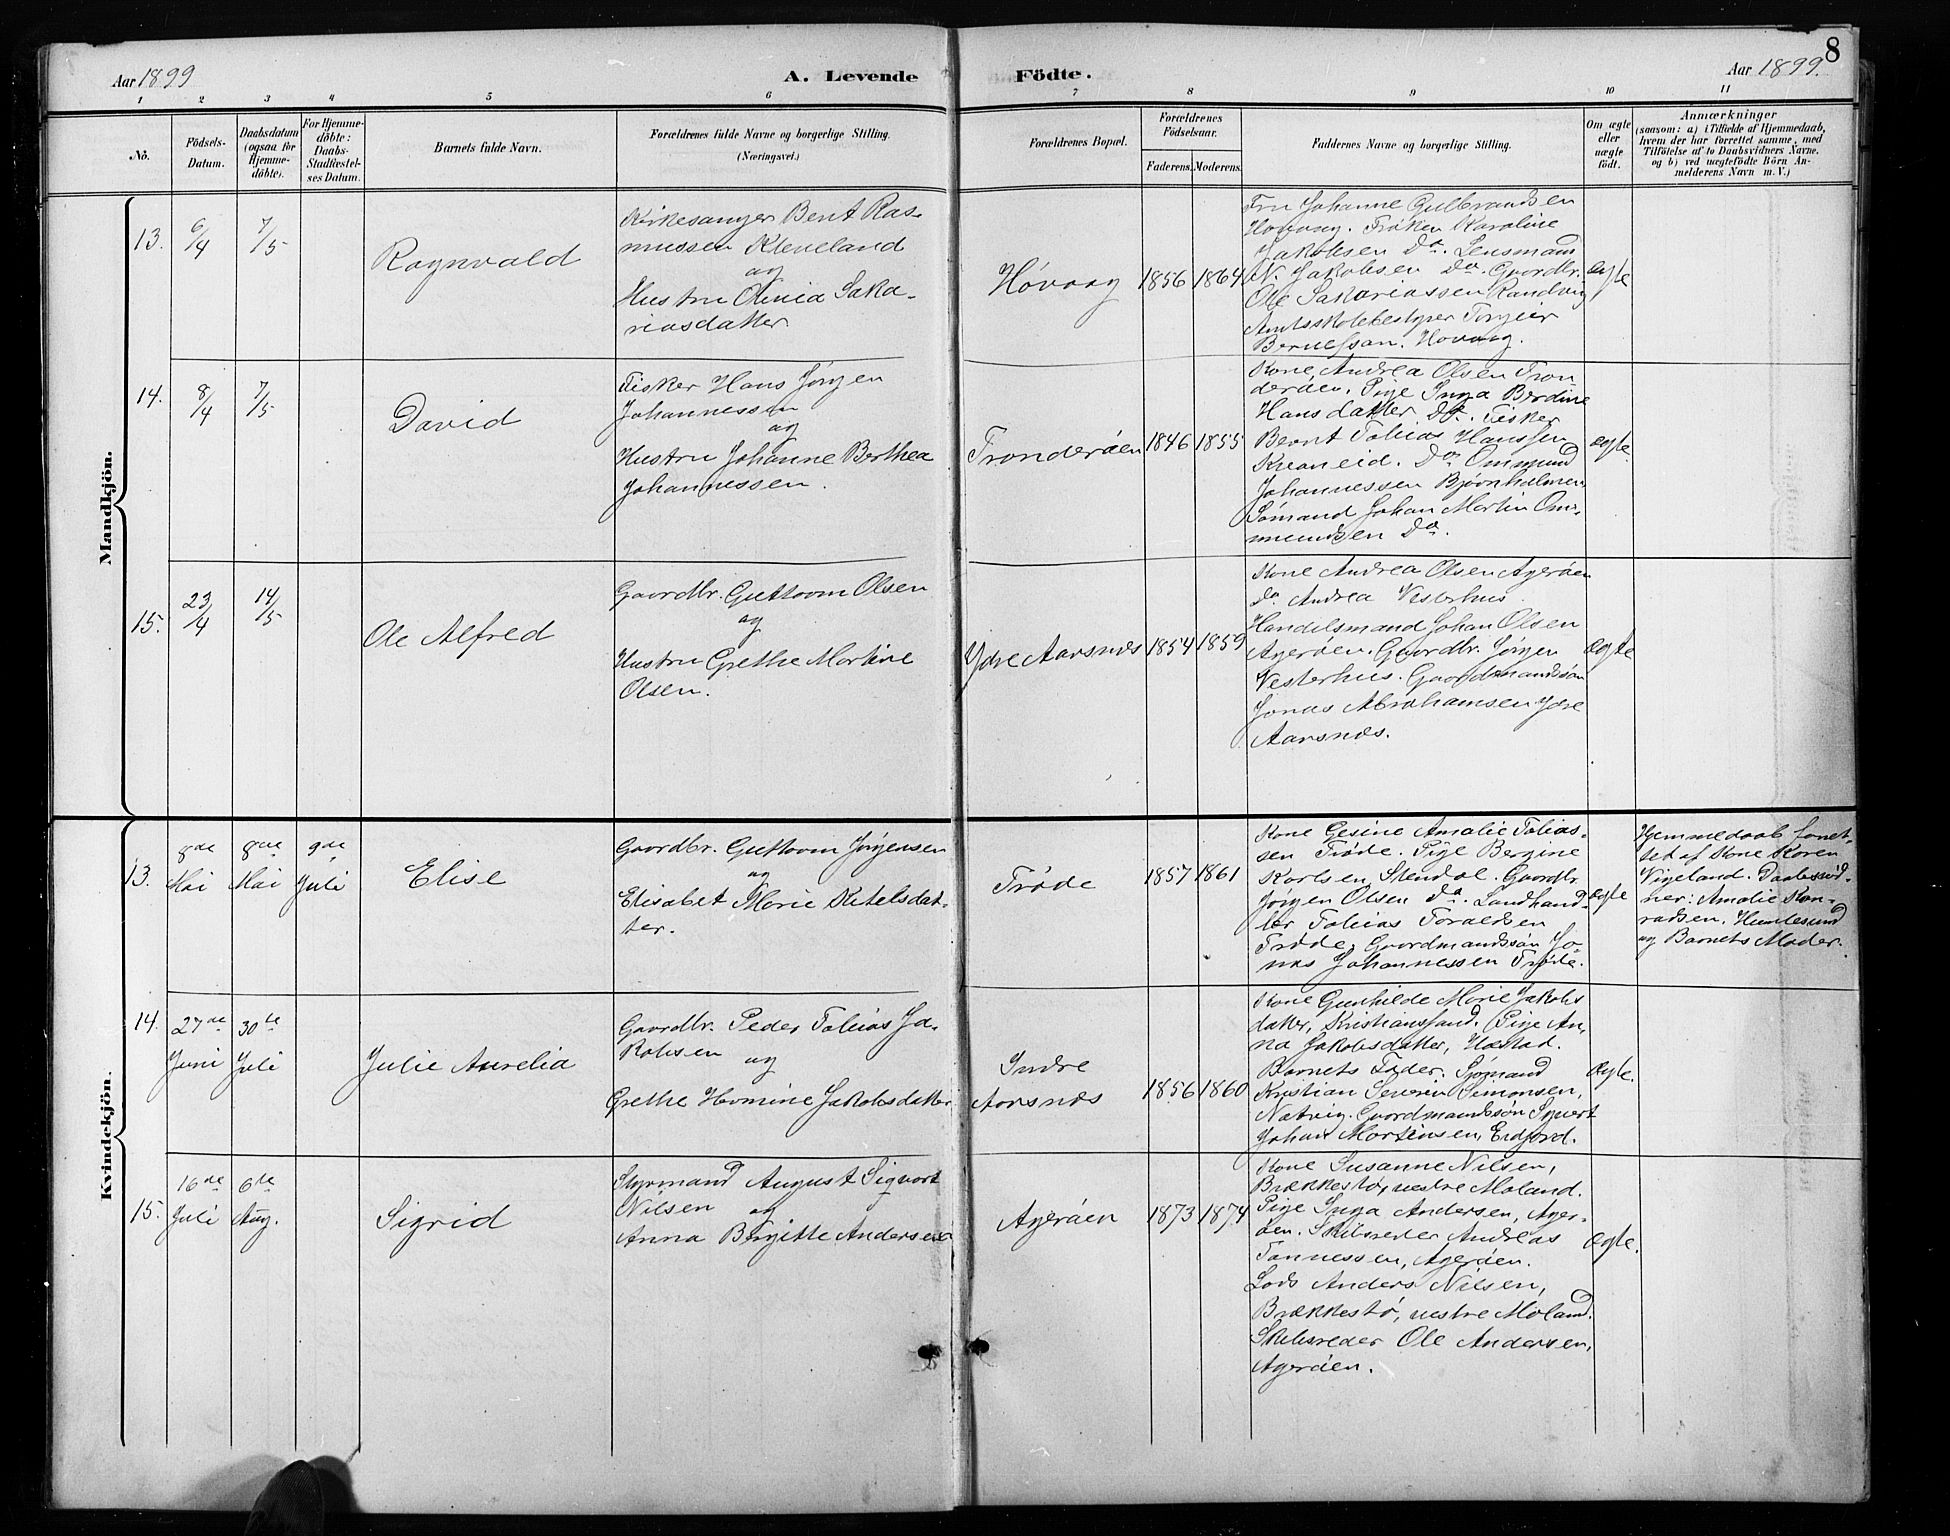 8
Aar 1899
A. Levende
Födte.
Aar 1899.
1 2 3 4 5 6 7 8 9 10 11
No.
Födsels-
Datum.
Daabsdatum
(ogsaa for
Hjemme-
döbte).
For Hjemme-
döbte:
Daabs-
Stadfæstel-
ses Datum.
Barnets fulde Navn.
Forældrenes fulde Navne og borgerlige Stilling.
(Næringsvei.)
Forældrenes Bopæl.
Forældrenes
Födselsaar.
Faderens.
Moderens.
Faddernes Navne og borgerlige Stilling.
Om ægte
eller
uægte
födt.
Anmærkninger
(saasom: a) i Tilfælde af Hjemmedaab,
hvem der har forrettet samme, med
Tilföielse af to Daabsvidners Navne.
og b) ved uægtefödte Börn An-
melderens Navn m. V.)
Mandkjön.
13.
6/4
7/5
Ragnvald
Kirkesanger Bent Ras-
mussen Kleveland
og
Hustru Olivia Saka-
riasdatter
Høvaag
1856
1864
Fru Johanne Gulbrandsen
Høvaag. Frøken Karoline
Jakobsen Do. Lensmand
N. Jakobsen Do. Gaardbr.
Ole Sakariassen Randvig
Amtsskolebestyrer Torgeir
Høvaag.
ægte
14.
8/4
7/5
David
Fisker Hans Jørgen
Johannessen
og
Hustru Johanne Berthea
Johannessen.
Tronderøen
1846
1855
Kone Andrea Olsen Tron-
derøen. Pige Inga Berdine
Hansdatter Do. Fisker
Bernt Tobias Hanssen
Kvaneid. Do Ommund
Johannessen Bjørnholmen
Sømand Johan Martin Om-
mundsen Do.
ægte.
15.
23/4
14/5
Ole Alfred
Gaardbr. Guttorm Olsen
og
Hustru Grethe Martine
Olsen.
Ydre Aarsnæs
1854
1859
Kone Andrea Olsen Agerøen
Do Andrea Vesterhus
Handelsmand Johan Olsen
Agerøen. Gaardbr. Jørgen
Vesterhus. Gaardmandssøn
Jonas Abrahamsen Ydre
Aarsnæs.
ægte
Kvindekjön.
13.
8de
Mai
8de
Mai
9de
Juli
Elise
Gaardbr. Guttorm Jørgensen
og
Elisabet Marie Ketelsdat-
ter.
Trøde
1857
1861
Kone Gesine Amalie Tobias-
sen Trøde. Pige Bergine
Karlsen, Stendal. Gaardbr.
Jørgen Olsen Do. Landhand-
ler Tobias Toraldsen
Trøde. Gaardmandssøn Jo-
nas Johannessen Trøde.
ægte
Hjemmedaab forret-
tet af Kone Karen
Vigeland. Daabsvid-
ner: Amalie Kon-
radsen, Humlesund
og Barnets Moder.
14.
27de
Juni
30te
Juli
Julie Aurelia
Gaardbr. Peder Tobias Ja-
kobsen og
Grethe Hermine Jakobsdatter
Indre
Aarsnæs
1856
1860
Kone Gunhilde Marie Jakobs
datter, Kristianssand. Pige An-
na Jakobsdatter, Hæstad.
Barnets Fader. Sjømand
Kristian Severin Simonsen,
Natvig. Gaardmandssøn Sigvart
Johan Martinsen, Eidjord.
ægte.
15.
16de
Juli
6te
Aug.
Sigrid
Styrmand August Sigvart
Nilsen og
Anna Birgitte Andersen
Agerøen
1873
1874
Kone Susanne Nilsen,
Brækkestø, vestre Moland.
Pige Inga Andersen, Ager-
øen. Skibsreder Andreas
Tønnessen, Agerøen.
Lods Anders Nilsen,
Brækkestø, vestre Moland.
Skibsreder Ole Andersen,
Agerøen.
ægte.